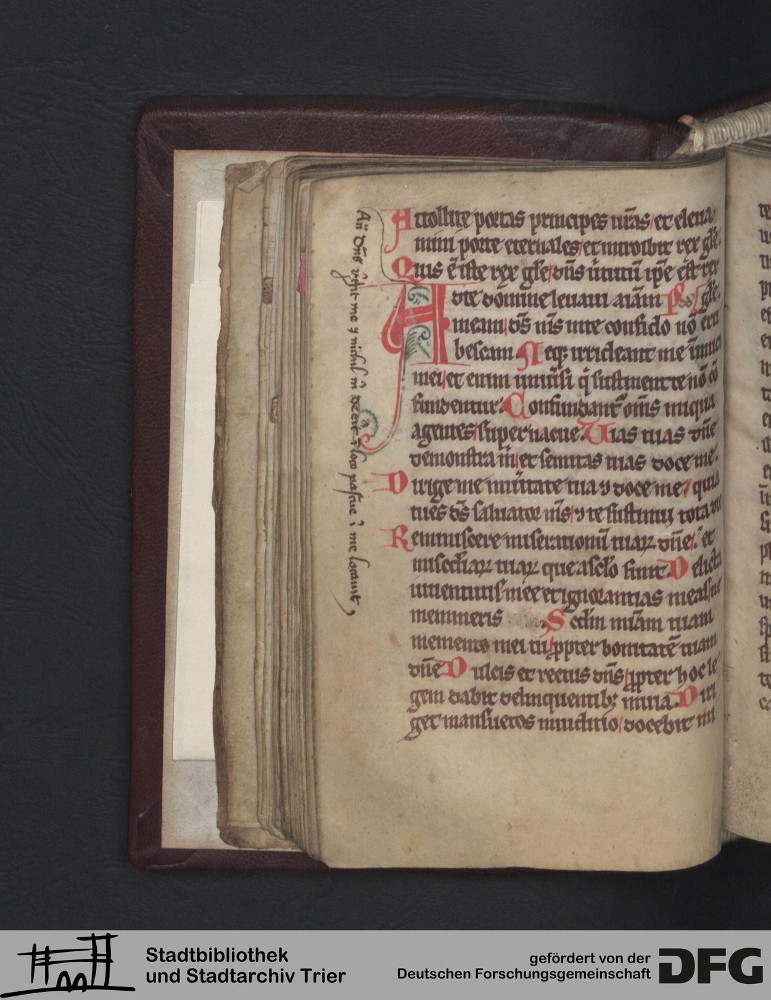 Attollite portas principes ur̄as/et eleua
mini porte eternales/et introibit rex gl̄e.
Quis ē iste rex gl̄e/dn̄s uirtutū ip̄e est rex
Ad te domine leuaui aīam Ps gl̄e.
meam/ds̄ ms̄ in te confido nō eru
bescam. Neq; irrideant me inimici
mei/et enim uniūsi q̄ sustinent te nō cō
fundentur. Confundant᷑ om̄s iniqua
agentes/superuacue. Uias tuas dn̄e
demonstra m̄/et semitas tuas doce me.
Dirige me in ūitate tua ⁊ doce me/quia
tu es ds̄ saluator ms̄/⁊ te sustinui tota die
Reminiscere miserationū tuaꝝ dn̄e/et
miscd̄iaꝝ tuaꝝ que a sclo sunt. Delicta
iuuentutis mee et ignorantias meas/ne
memineris Scdm mīam tuam
memento mei tu/ꝓpter bonitatē tuam
dn̄e Dulcis et rectus dn̄s/ꝓpter hoc le
gem dabit delinquentib; in uia. Diri
get mansuetos in iudicio/docebit mi
An̄ Dn̄s regit me ⁊ nichil m̄ deerit ī loco pascue ī me locauit
Stadtbibliothek
und Stadtarchiv Trier
gefördert von der
Deutschen Forschungsgemeinschaft
DFG